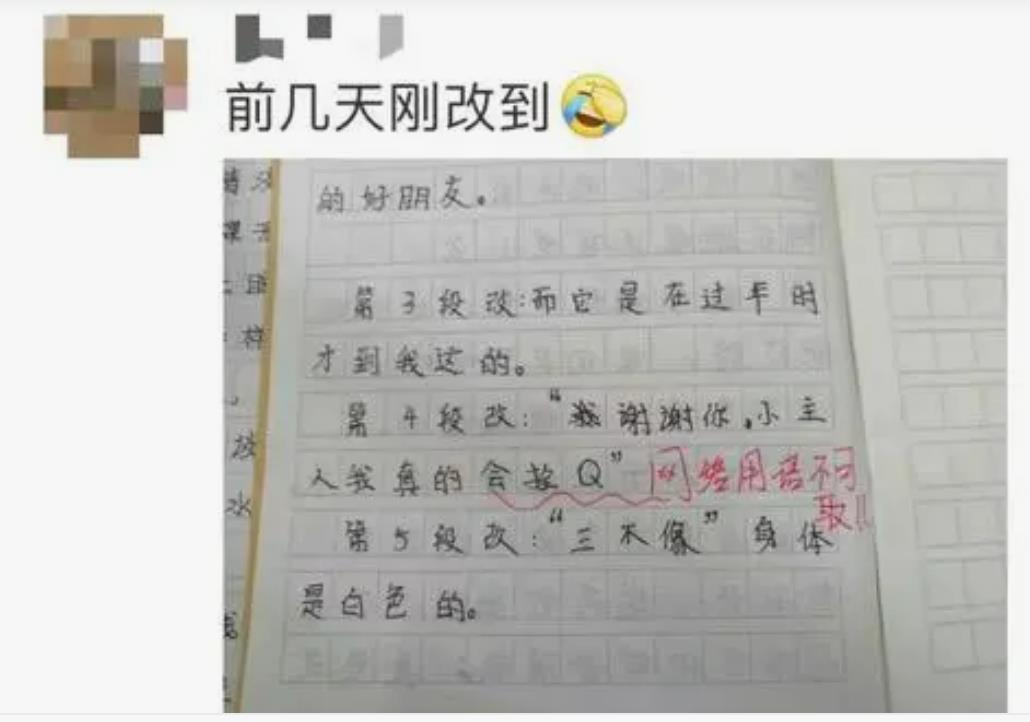 前几天刚改到
的好朋友。
第3段改:而它是在过年时
才到我这的。
第4段改:“谢谢你,小主
人我真的会蚌Q”
网络用语不可
取!!
第5段改:“三不像”身体
是白色的。